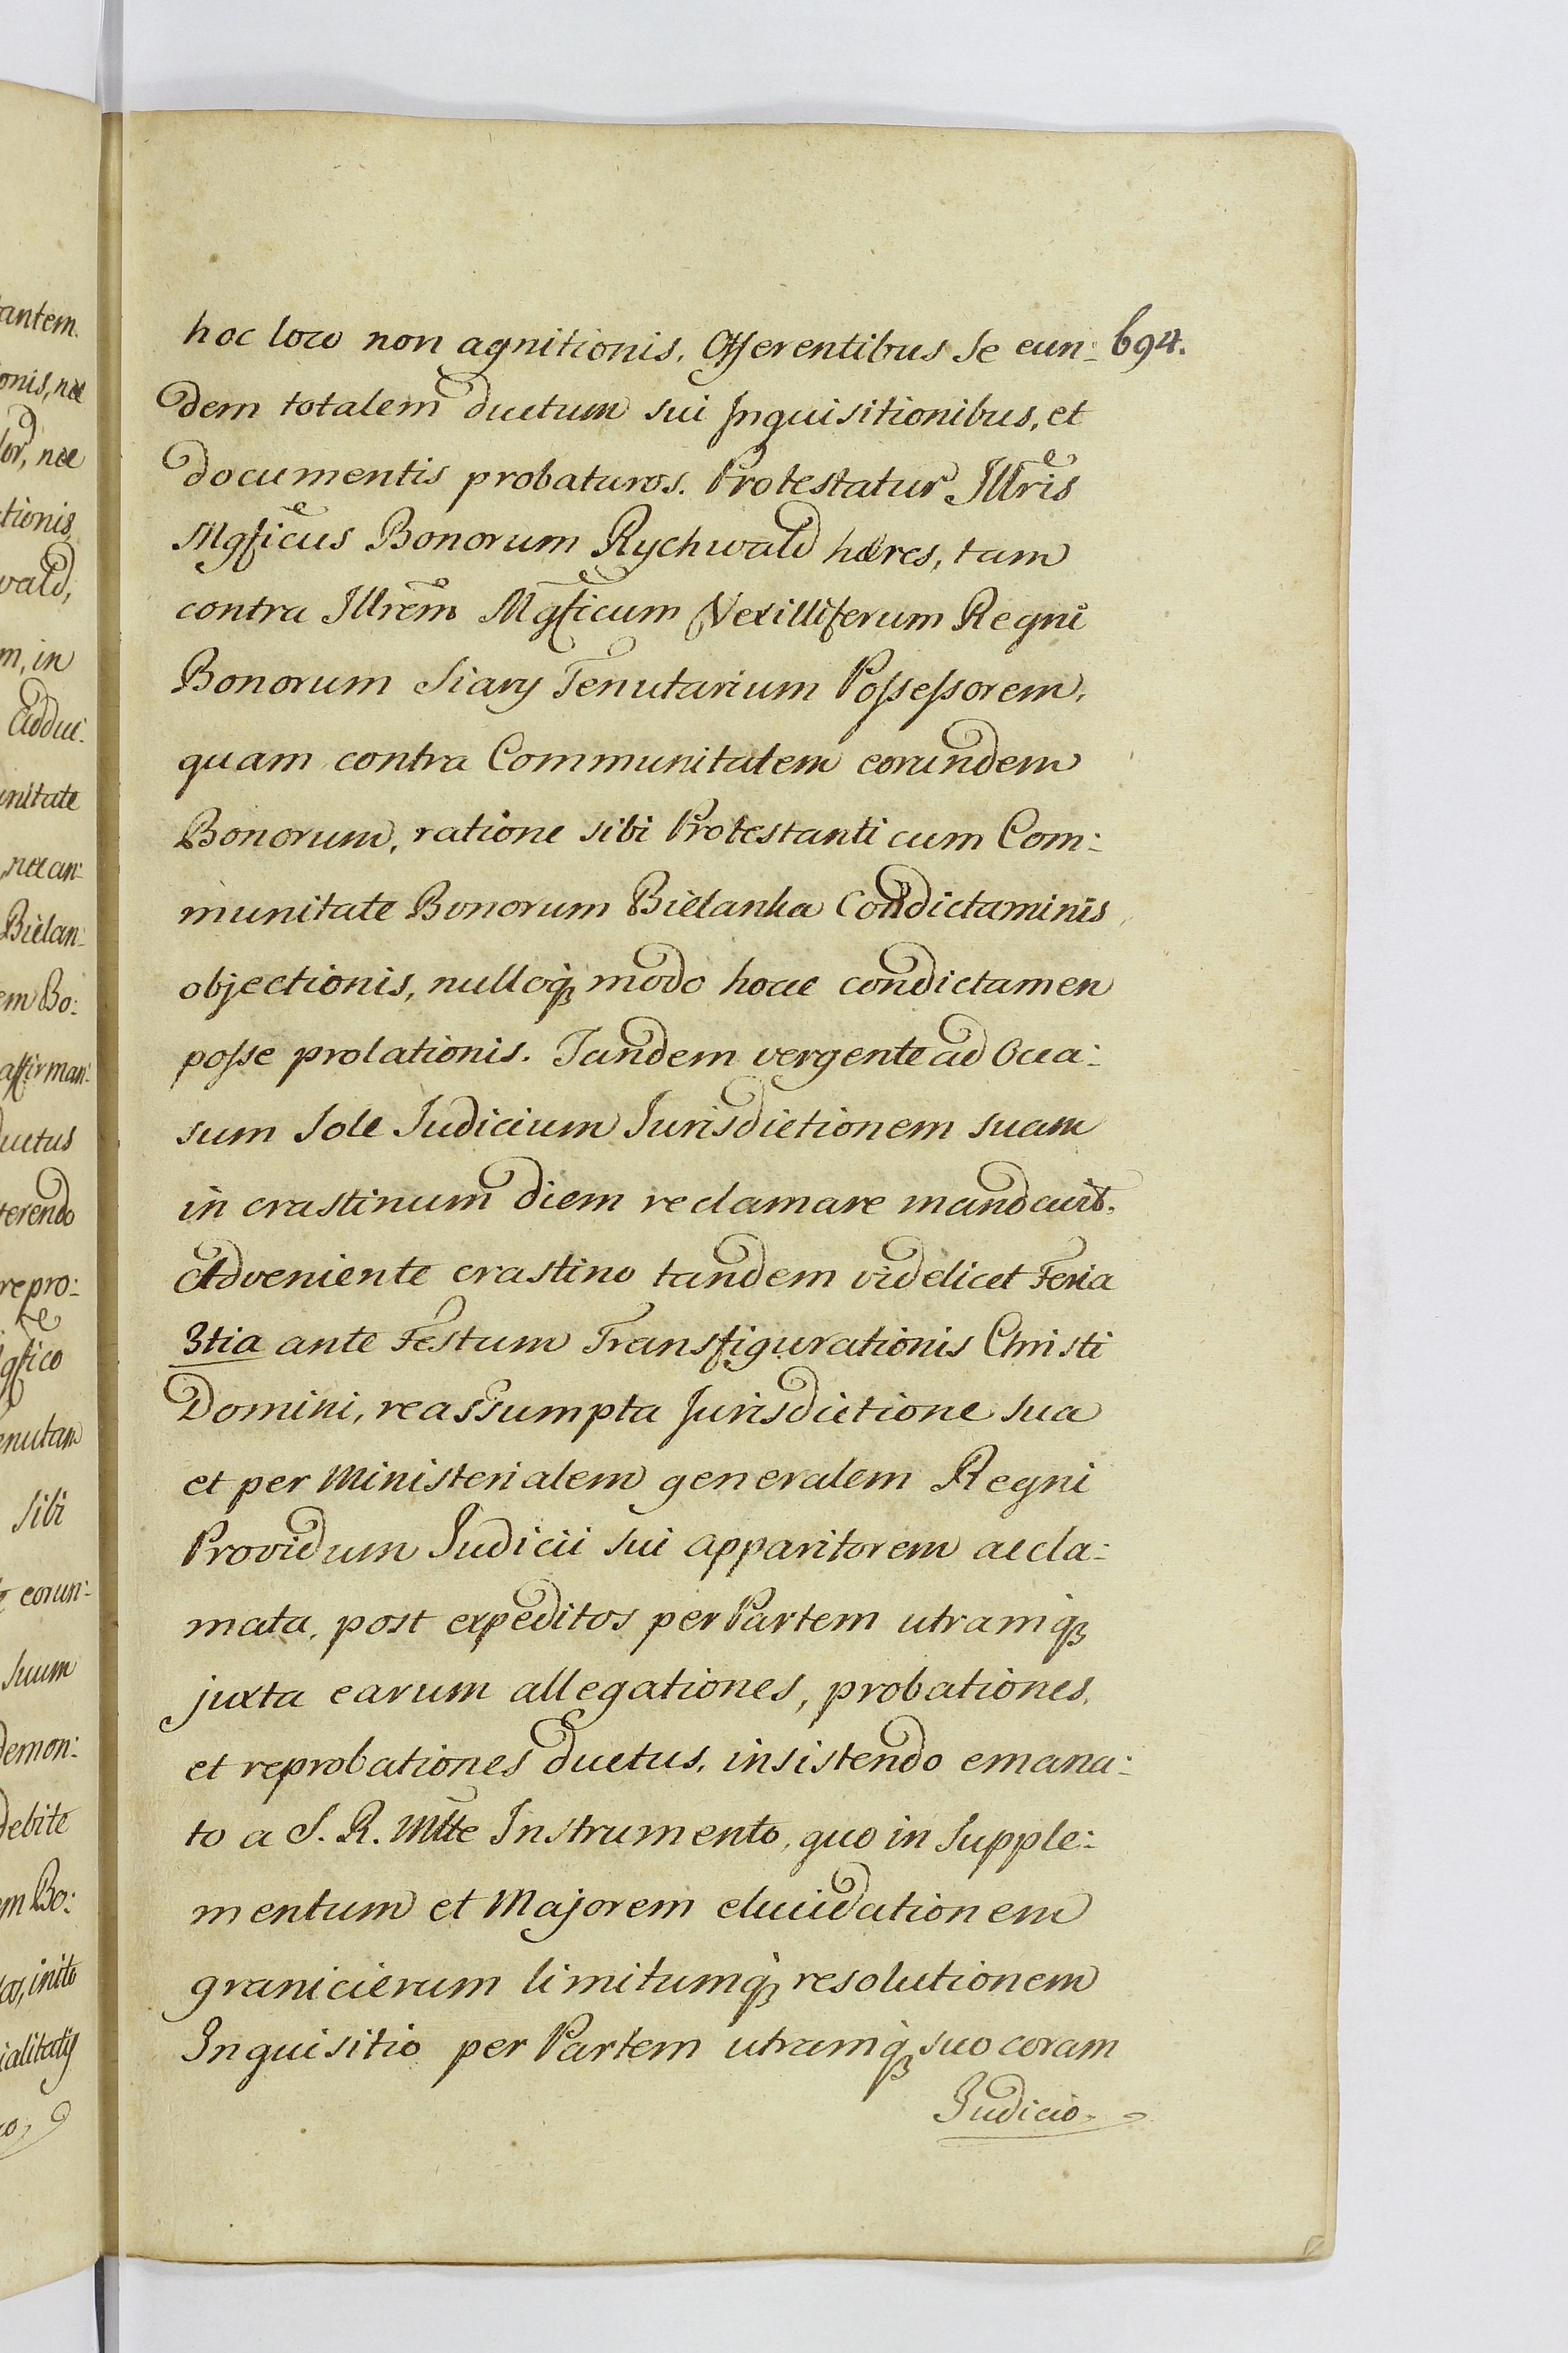 hoc loco non agnitionis. Offerentibus se eun: 694.
dem totalem ductum sui Inquisitionibus, et
documentis probaturos. Protestatur Illris
Mgficus Bonorum Rychwald hæres, tam
contra Illrem Mgficum Vexilliferum Regni
Bonorum Siary Tenutarium Possessorem,
quam contra Communitatem eorundem
Bonorum, ratione sibi Protestanti cum Com:
munitate Bonorum Bielanka Condictaminis
objectionis, nulloq3 modo hocce condictamen
posse prolationis. Tandem vergente ad Occa:
sum Sole Judicium Jurisdictionem suam
in crastinum diem reclamare mandavit.
Adveniente crastino tandem videlicet Feria
3tia ante Festum Transfigurationis Christi
Domini, reassumpta Jurisdictione sua
et per Ministerialem generalem Regni
Providum Judicii sui apparitorem accla:
mata, post expeditos per Partem utramq3
juxta earum allegationes, probationes,
et reprobationes ductus, insistendo emana:
to a S. R. Mtte Instrumento, quo in Supple:
mentum et Majorem elucidationem
granicierum limitumq3 resolutionem
Inquisitio per Partem utramq3 suo coram
Judicio
antem.
onis, nec
lor, nec
tionis
wald,
m, in
Addu:
unitate
, nec an:
Bielan:
em Bo:
affirman:
ductus
ferendo
repro:
gfico
enutam
sibi
eorun:
suum
demon:
debite
em Bo:
inito
ialitatis